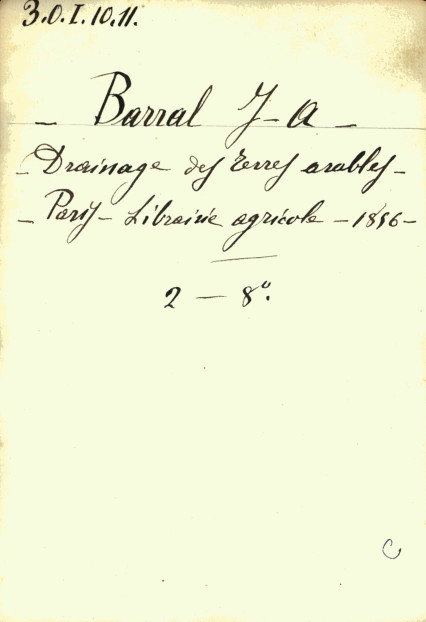 3.O.I.10.11.
– Barral J-A –
– Drainage des terres arables –
– Paris – Librairie agricole – 1856 –
2 – 8º.
C